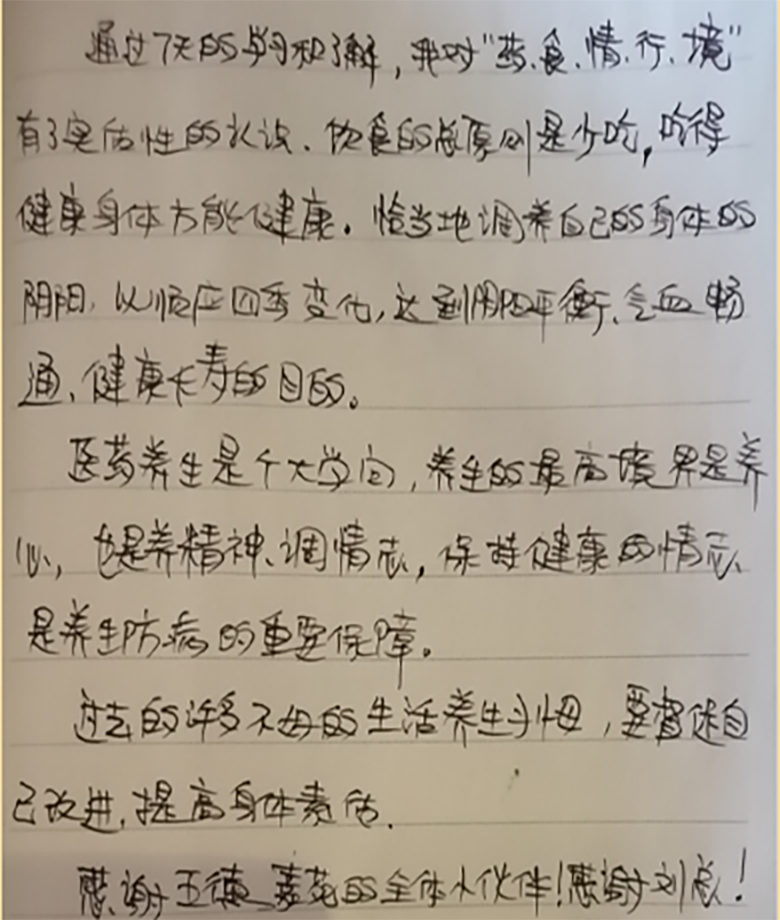 通过7天的学习和了解，我对“药、食、情、行、境”
有了实质性的认识、饮食的总原则是少吃，吃得
健康身体方能健康。恰当地调养自己的身体的
阴阳，以顺应四季变化，达到阴阳平衡、气血畅
通、健康长寿的目的。
医药养生是个大学问，养生的最高境界是养
心，也是养精神、调情志，保持健康的情志、
是养生防病的重要保障。
过去的许多不好的生活养生习惯，要督促自
己改进，提高身体素质.
感谢五德 的全体小伙伴！感谢刘总！